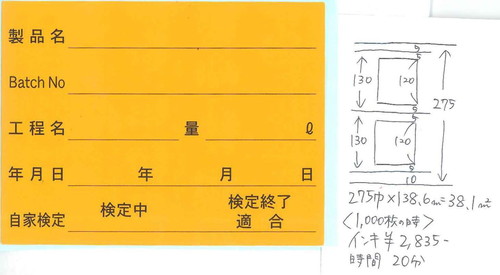 製品名
Batch No
工程名 量 ℓ
年月日 年 月 日
自家検定 検定中 検定終了
適 合
5
5
130 120
5
275
5
130 120
5
10
275巾×138.6m=38.1㎡
〈1,000枚の時〉
インキ ¥2,835-
時間 20分